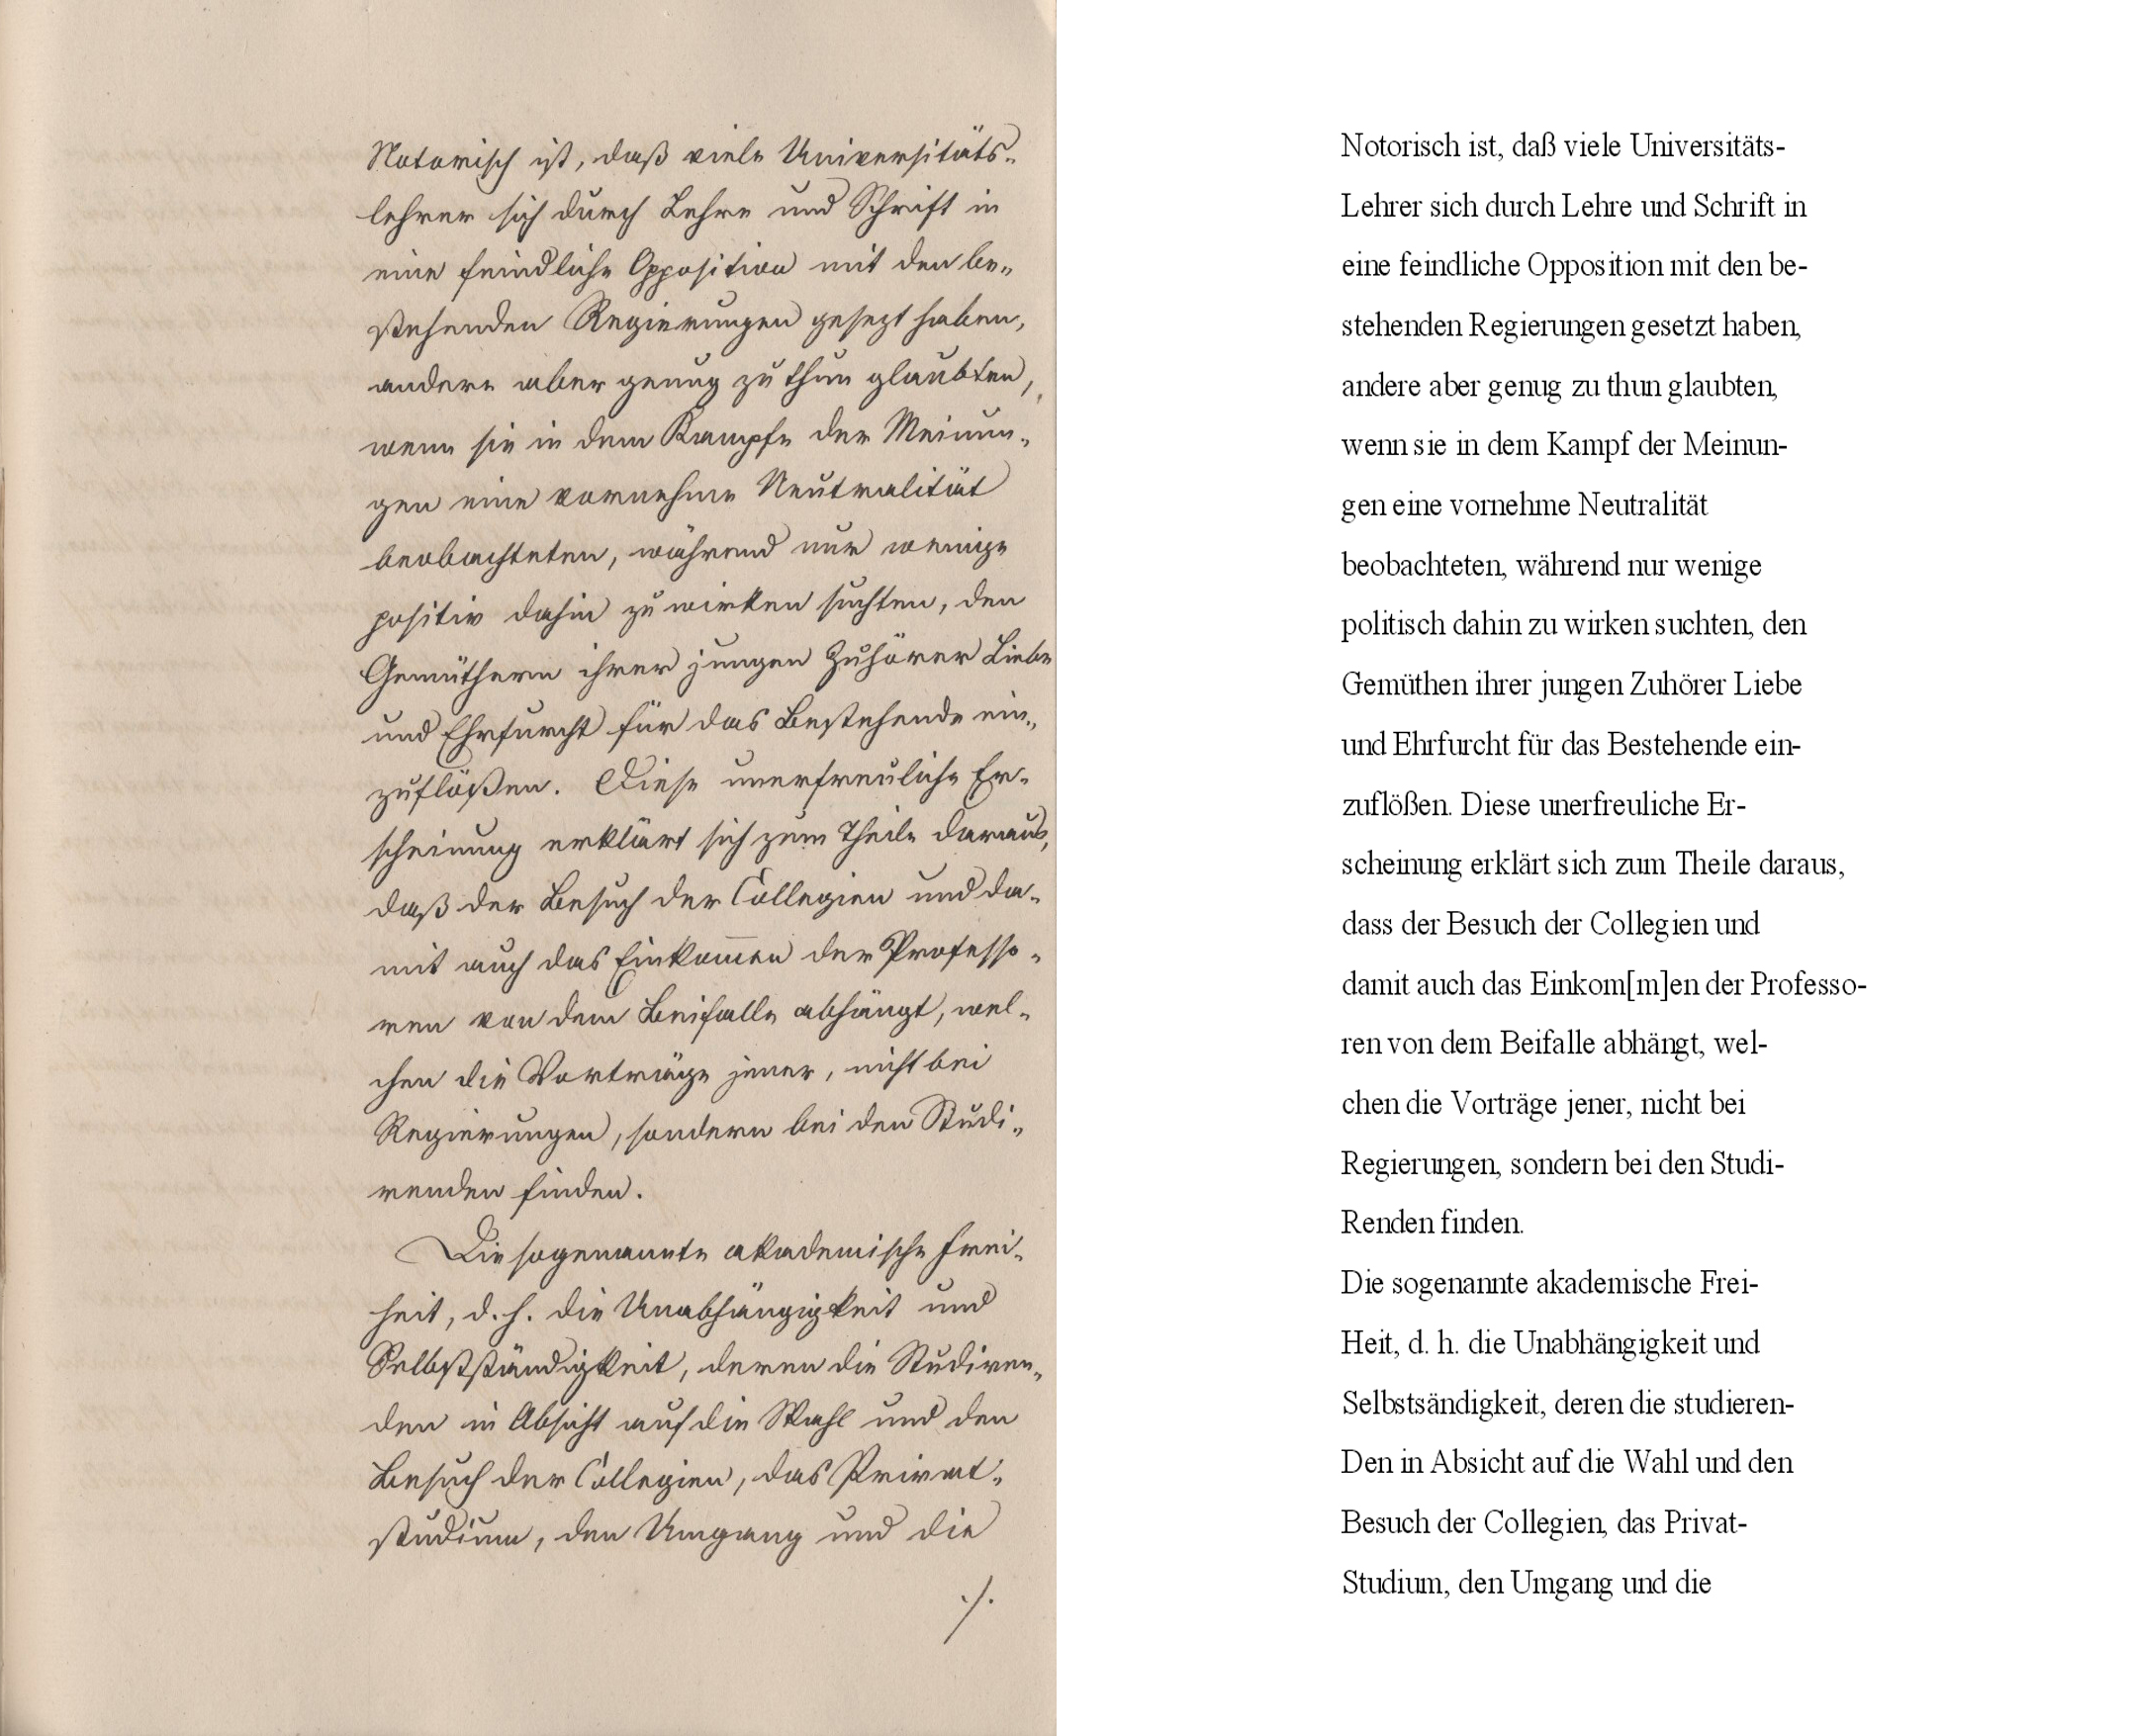 Notorisch ist, daß viele Universitäts-
lehrer sich durch Lehre und Schrift in
eine feindliche Opposition mit den be-
stehenden Regierungen gesezt haben,
andere aber genug zu thun glaubten,
wenn sie in dem Kampfe der Meinun-
gen eine vornehme Neutralität
beobachteten, während nur wenige
positiv dahin zu wirken suchten, den
Gemüthern ihrer jungen Zuhörer Liebe
und Ehrfurcht für das Bestehende ein-
zuflößen. Diese unerfreuliche Er-
scheinung erklärt sich zum Theile daraus,
daß der Besuch der Collegien und da-
mit auch das Einkom̅en der Professo-
ren von dem Beifalle abhängt, wel-
chen die Vorträge jener, nicht bei
Regierungen, sondern bei den Studi-
renden finden.
Die sogenannte akademische Frei-
heit, d. h. die Unabhängigkeit und
Selbstständigkeit, deren die Studiren-
den in Absicht auf die Wahl und den
Besuch der Collegien, das Privat-
studium, den Umgang und die
./.
Notorisch ist, daß viele Universitäts-
Lehrer sich durch Lehre und Schrift in
eine feindliche Opposition mit den be-
stehenden Regierungen gesetzt haben,
andere aber genug zu thun glaubten,
wenn sie in dem Kampf der Meinun-
gen eine vornehme Neutralität
beobachteten, während nur wenige
politisch dahin zu wirken suchten, den
Gemüthen ihrer jungen Zuhörer Liebe
und Ehrfurcht für das Bestehende ein-
zuflößen. Diese unerfreuliche Er-
scheinung erklärt sich zum Theile daraus,
dass der Besuch der Collegien und
damit auch das Einkom[m]en der Professo-
ren von dem Beifalle abhängt, wel-
chen die Vorträge jener, nicht bei
Regierungen, sondern bei den Studi-
Renden finden.
Die sogenannte akademische Frei-
Heit, d. h. die Unabhängigkeit und
Selbstsändigkeit, deren die studieren-
Den in Absicht auf die Wahl und den
Besuch der Collegien, das Privat-
Studium, den Umgang und die